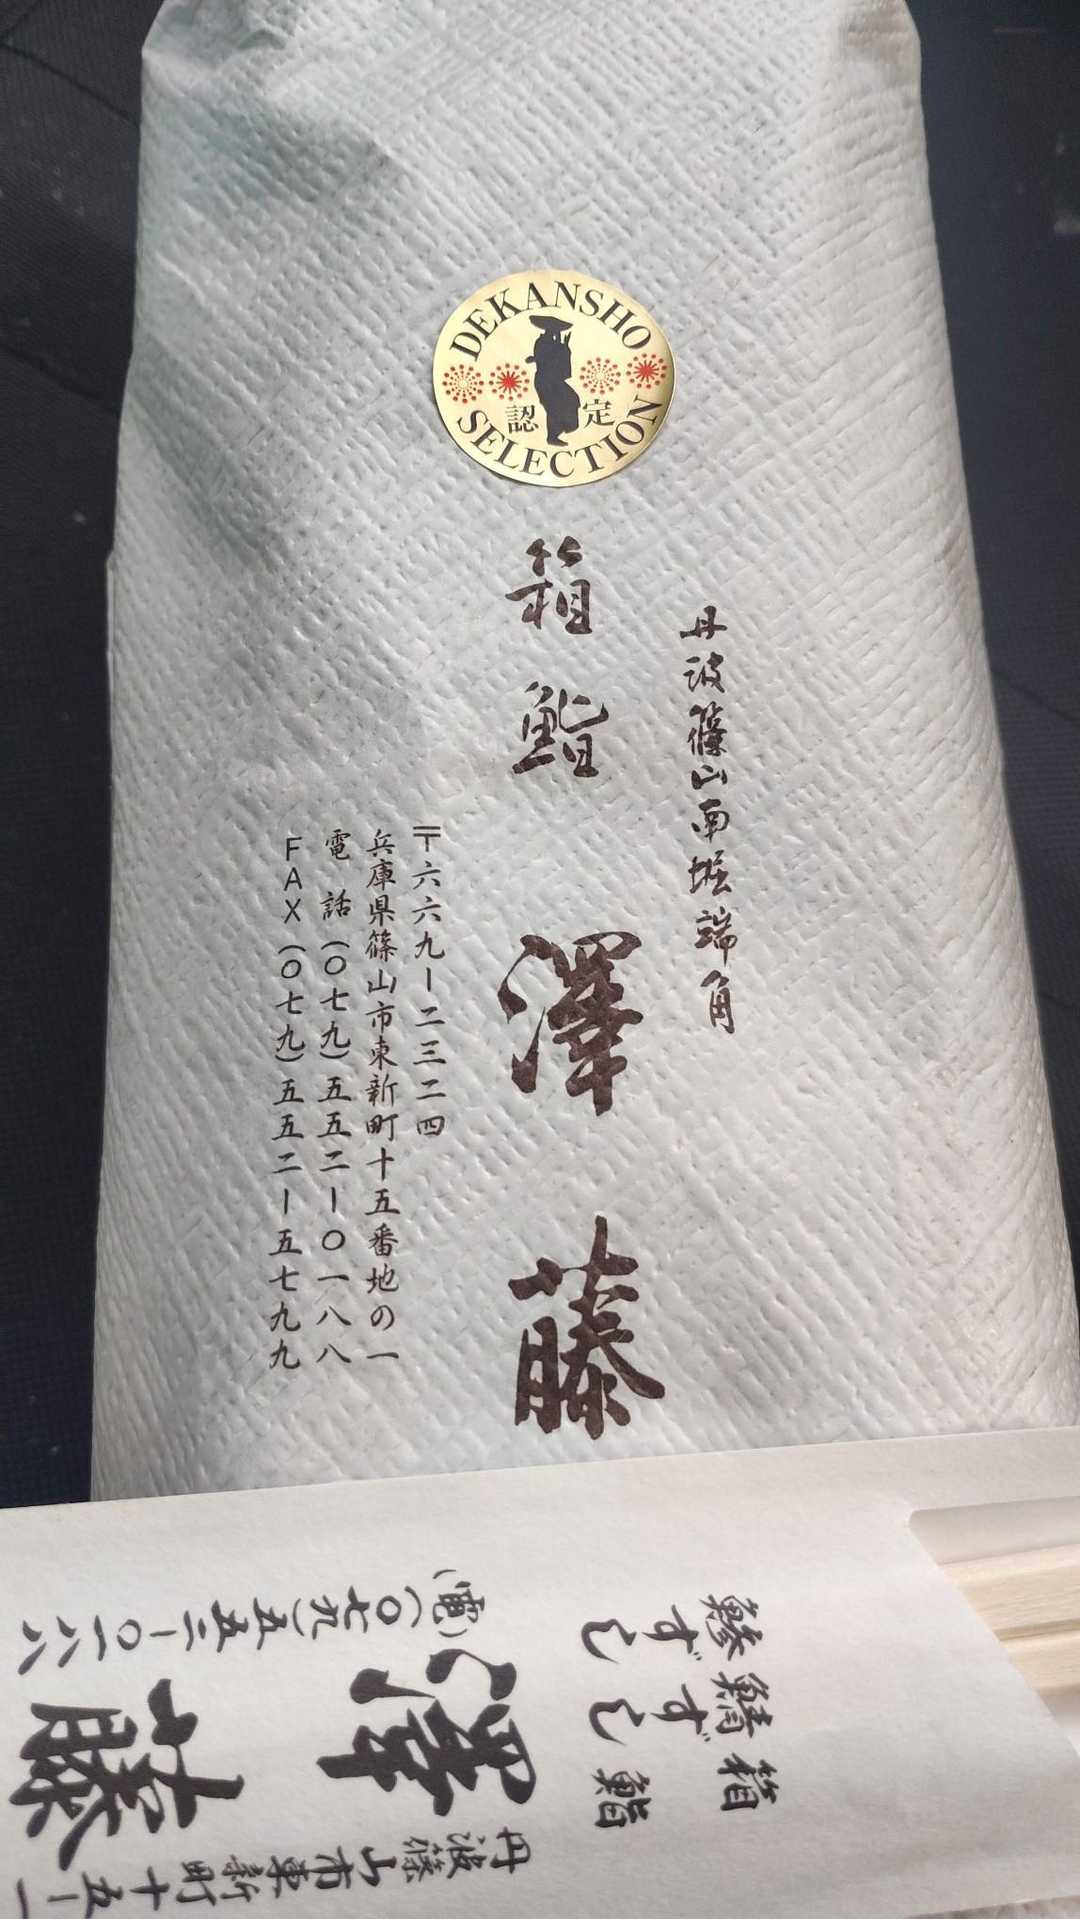 DEKANSHO
認定
SELECTION
丹波篠山南堀端角
箱鮨 澤藤
〒六六九ー二三二四
兵庫県篠山市東新町十五番地の一
電話(〇七九)五五二ー〇一八八
FAX(〇七九)五五二ー五七九九
箱鮨
鯖ずし
鰺ずし
丹波篠山市東新町十五ー一
澤藤
(電)(〇七九)五五二ー〇一八八